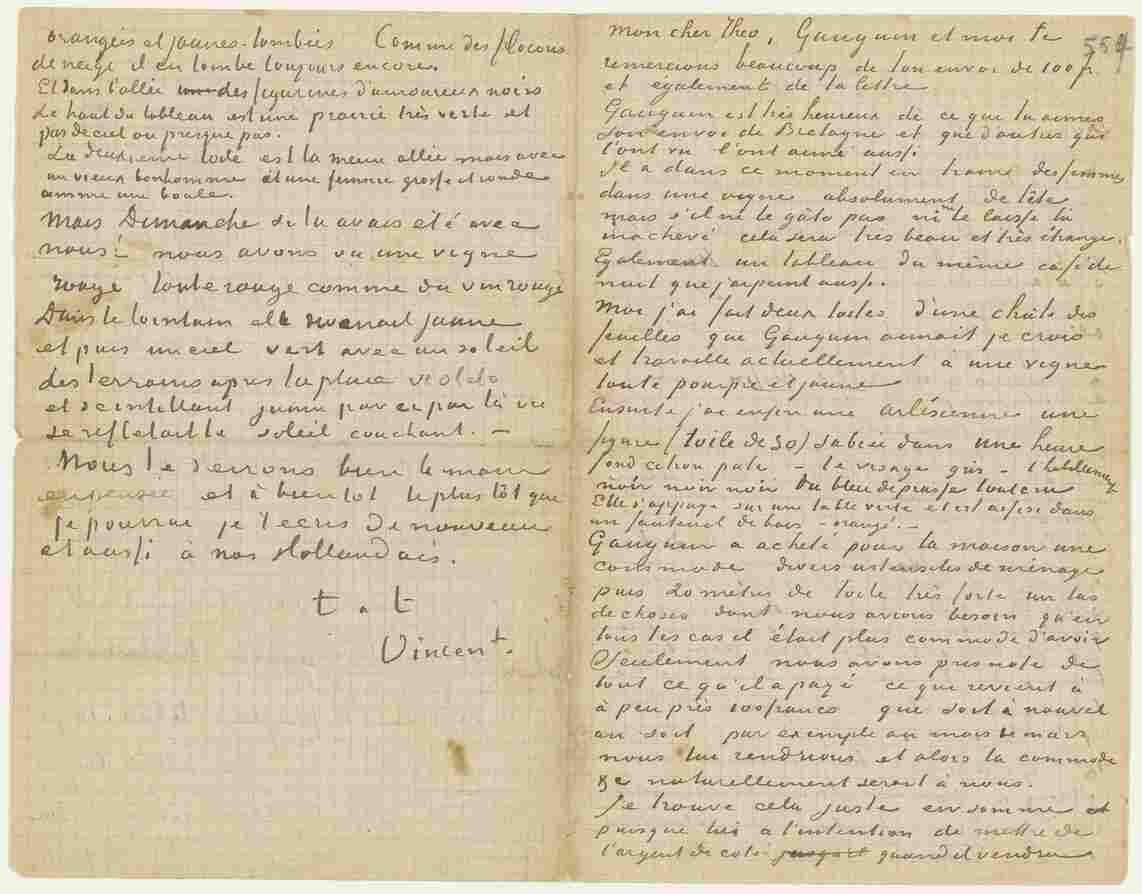 orangées et jaunes. tombées Comme des flocons
de neige il en tombe toujours encore.
Et dans l'allée des figurines d'amoureux noirs
Le haut du tableau est une prairie très verte et
pas de ciel ou presque pas.
La deuxieme toile est la meme allée mais avec
un vieux bonhomme et une femme grosse et ronde
comme une boule.
Mais Dimanche si tu avais été avec
nous! nous avons vu une vigne
rouge toute rouge comme du vin rouge
Dans le lointain elle devenait jaune
et puis un ciel vert avec un soleil
des terrains après la pluie violets
et scintillant jaune par ci par là où
se refletait le soleil couchant. –
Nous te serrons bien la main
en pensée et à bientot le plus tôt que
je pourrai je t'ecris de nouveau
et aussi à nos Hollandais.
t. à t
Vincent.
Mon cher Theo, Gauguin et moi te 559
remercions beaucoup de ton envoi de 100 fr.
et également de ta lettre
Gauguin est très heureux de ce que tu aimes
son envoi de Bretagne et que d'autres qui
l'ont vu l'ont aimé aussi
Il a dans ce moment en train des femmes
dans une vigne absolument de tête
mais s'il ne le gâte pas ni ne le laisse là
inachevé cela sera très beau et très étrange.
Egalement un tableau du même café de
nuit que j'ai peint aussi.
Moi j'ai fait deux toiles d'une chute des
feuilles que Gauguin aimait je crois
et travaille actuellement à une vigne
toute pourpre et jaune
Ensuite j'ai enfin une Arlésienne une
figure (toile de 30) sabrée dans une heure
fond citron pale – le visage gris – l'habillement
noir noir noir du bleu de prusse tout cru
Elle s'appuye sur une table verte et est assise dans
un fauteuil de bois – orangé. –
Gauguin a acheté pour la maison une
commode divers ustensiles de ménage
puis 20 mètres de toile très forte un tas
de choses dont nous avions besoin qu'en
tous les cas il était plus commode d'avoir
Seulement nous avons pris note de
tout ce qu'il a payé ce qui revient à
à peu près 100 francs que soit à nouvel
an soit par exemple au mois de mars
nous lui rendrions et alors la commode
&c naturellement serait à nous.
Je trouve cela juste en somme
puisque lui a l'intention de mettre de
l'argent de coté jusqu'où quand il vendra